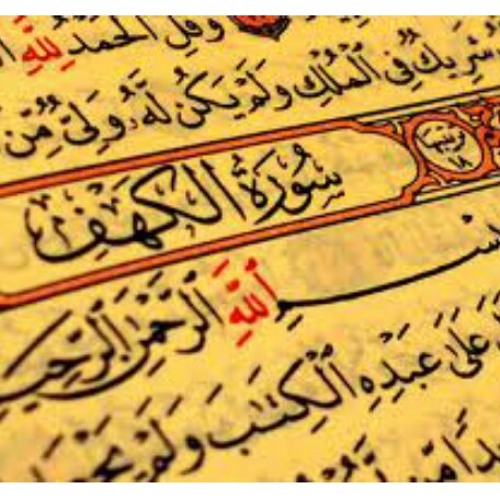 وَقُلِ ٱلْحَمْدُ لِلَّهِ
شَرِيكٌ فِى ٱلْمُلْكِ وَلَمْ يَكُن لَّهُۥ وَلِىٌّ مِّنَ
سُورَةُ الكَهْفِ
ترتيبها ١٨
بِسْمِ ٱللَّهِ ٱلرَّحْمَٰنِ ٱلرَّحِيمِ
عَلَىٰ عَبْدِهِ ٱلْكِتَٰبَ وَلَمْ يَجْعَل